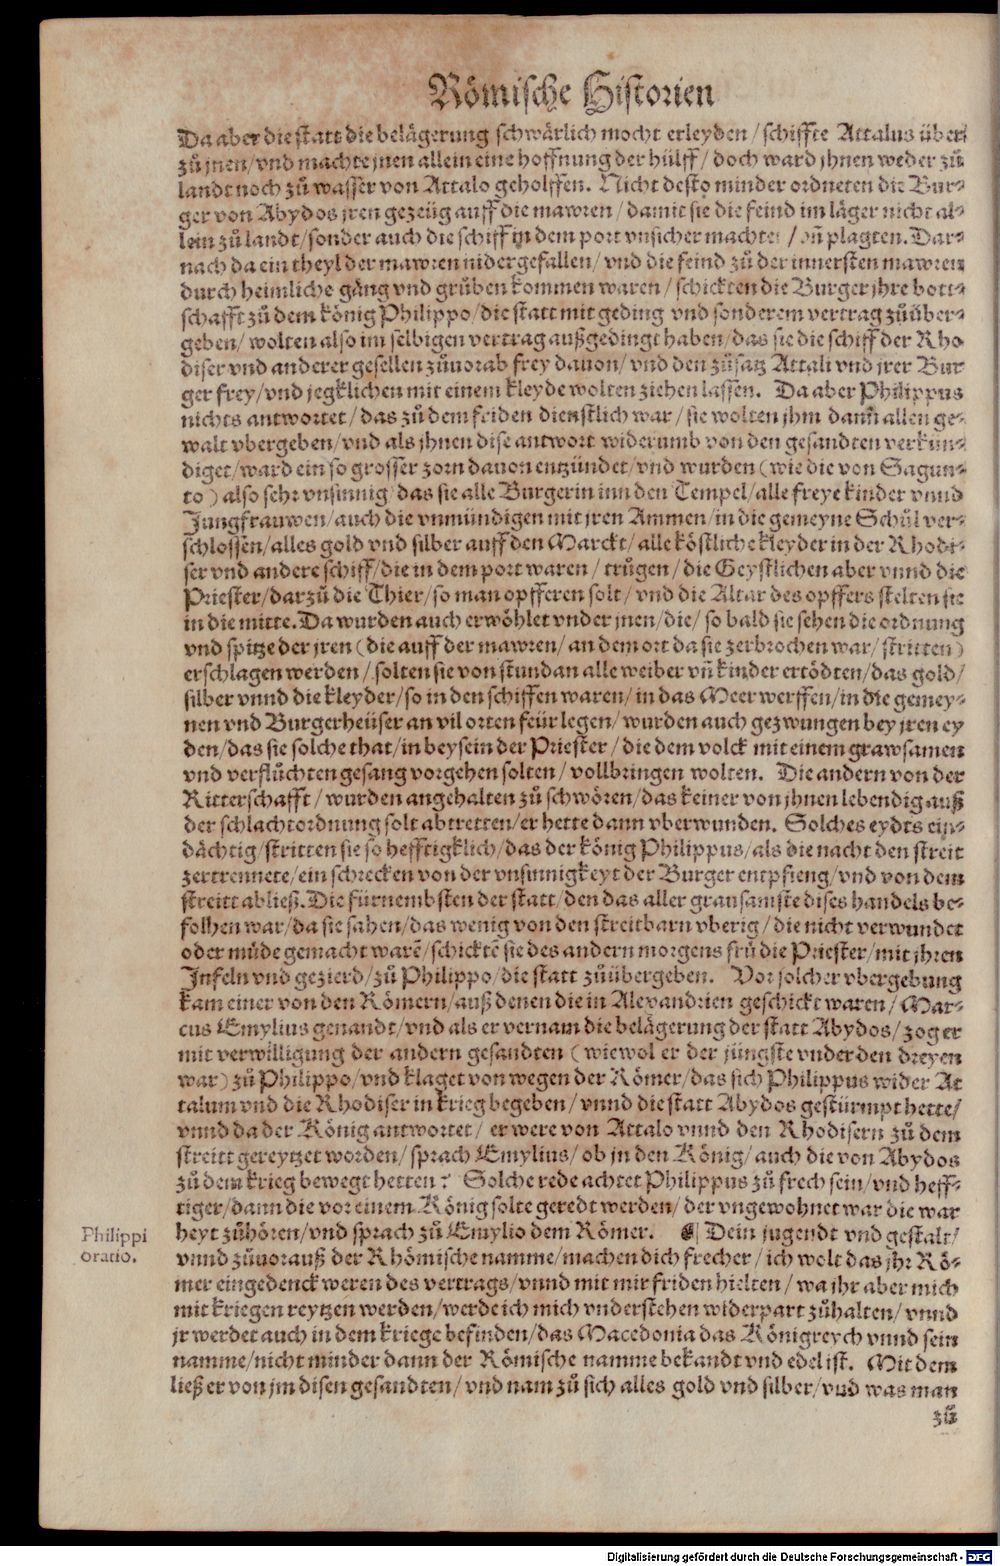 Römische Historien
Da aber die statt die belägerung schwärlich mocht erleyden / schiffte Attalus über
zů jnen / vnd machte jnen allein eine hoffnung der hülff / doch ward jhnen weder zů
landt noch zů wasser von Attalo geholffen. Nicht desto minder ordneten die Bur-
ger von Abydos jren gezeüg auff die mawren / damit sie die feind im läger nicht al-
lein zů landt / sonder auch die schiff in dem port vnsicher machte / vñ plagten. Dar-
nach da ein theyl der mawren nidergefallen / vnd die feind zů der innersten mawren
durch heimliche gäng vnd grůben kommen waren / schickten die Burger jhre bott-
schafft zů dem könig Philippo / die statt mit geding vnd sonderem vertrag zů über-
geben / wolten also im selbigen vertrag außgedingt haben / das sie die schiff der Rho
diser vnd anderer gesellen zůuorab frey dauon / vnd den zůsatz Attali vnd jrer Bur
ger frey / vnd jegklichen mit einem kleyde wolten ziehen lassen. Da aber Philippus
nichts antwortet / das zů dem friden dienstlich war / sie wolten jhm dann allen ge-
walt vbergeben / vnd als jhnen dise antwort widerumb von den gesandten verkün-
diget / ward ein so grosser zorn dauon entzündet / vnd wurden (wie die von Sagun-
to) also sehr vnsinnig / das sie alle Burgerin inn den Tempel / alle freye kinder vnnd
Jungfrauwen / auch die vnmündigen mit jren Ammen / in die gemeyne Schůl ver-
schlossen / alles gold vnd silber auff den Marckt / alle köstliche kleyder in der Rhodi-
ser vnd andere schiff / die in dem port waren / trůgen / die Geystlichen aber vnnd die
Priester / darzů die Thier / so man opfferen solt / vnd die Altar des opffers stelten sie
in die mitte. Da wurden auch erwöhlet vnder jnen / die / so bald sie sehen die ordnung
vnd spitze der jren (die auff der mawren / an dem ort da sie zerbrochen war / stritten)
erschlagen werden / solten sie von stundan alle weiber vñ kinder ertödten / das gold /
silber vnnd die kleyder / so in den schiffen waren / in das Meer werffen / in die gemey-
nen vnd Burgerheüser an vil orten feür legen / wurden auch gezwungen bey jren ey
den / das sie solche that / in beysein der Priester / die dem volck mit einem grawsamen
vnd verflůchten gesang vorgehen solten / vollbringen wolten. Die andern von der
Ritterschafft / wurden angehalten zů schwören / das keiner von jhnen lebendig auß
der schlachtordnung solt abtretten / er hette dann vberwunden. Solches eydts ein-
dächtig / stritten sie so hefftigklich / das der könig Philippus / als die nacht den streit
zertrennete / ein schrecken von der vnsinnigkeyt der Burger entpfieng / vnd von dem
streitt abließ. Die fürnembsten der statt / den das aller grausamste dises handels be-
folhen war / da sie sahen / das wenig von den streitbarn vberig / die nicht verwundet
oder müde gemacht warẽ / schicktẽ sie des andern morgens frů die Priester / mit jhren
Infeln vnd gezierd / zů Philippo / die statt zů übergeben. Vor solcher vbergebung
kam einer von den Römern / auß denen die in Alexandrien geschickt waren / Mar-
cus Emylius genandt / vnd als er vernam die belägerung der statt Abydos / zog er
mit verwilligung der andern gesandten (wiewol er der jüngste vnder den dreyen
war) zů Philippo / vnd klaget von wegen der Römer / das sich Philippus wider At
talum vnd die Rhodiser in krieg begeben / vnnd die statt Abydos gestürmpt hette /
vnnd da der König antwortet / er were von Attalo vnnd den Rhodisern zů dem
streitt gereytzet worden / sprach Emylius / ob jn den König / auch die von Abydos
zů dem krieg bewegt hetten? Solche rede achtet Philippus zů frech sein / vnd heff-
tiger / dann die vor einem König solte geredt werden / der vngewohnet war die war
heyt zůhören / vnd sprach zů Emylio dem Römer. ¶ Dein jugendt vnd gestalt /
Philippi
oratio.
vnnd zůuorauß der Rhömische namme / machen dich frecher / ich wolt das jhr Rö-
mer eingedenck weren des vertrags / vnnd mit mir friden hielten / wa jhr aber mich
mit kriegen reytzen werden / werde ich mich vnderstehen widerpart zůhalten / vnnd
jr werdet auch in dem kriege befinden / das Macedonia das Königreych vnnd sein
namme / nicht minder dann der Römische namme bekandt vnd edel ist. Mit dem
ließ er von jm disen gesandten / vnd nam zů sich alles gold vnd silber / vnd was man
zů
Digitalisierung gefördert durch die Deutsche Forschungsgemeinschaft - DFG